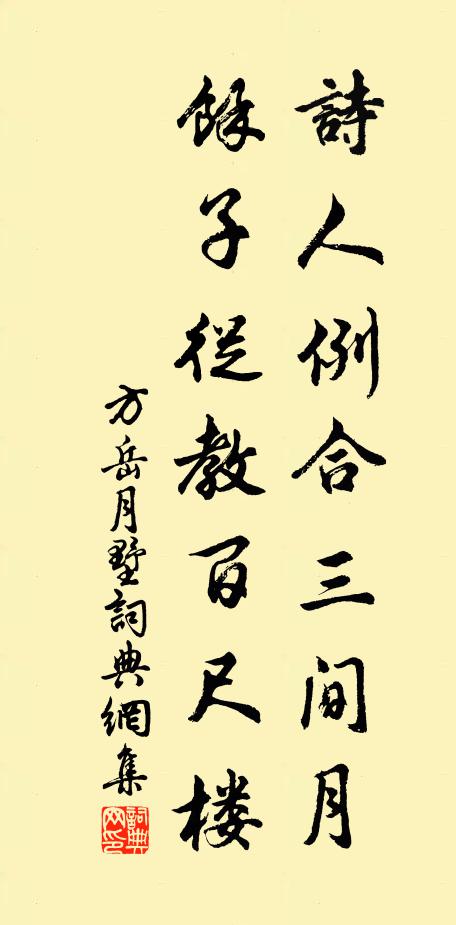 詩人例合三間月
餘子從教百尺楼
方岳月墅詞典網集
詞典网印